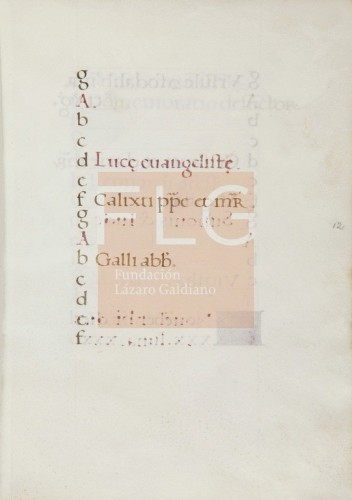 g
A.
b
c
d Lucę euangelistę.
e
f Calixti pp̄e et mr̄.
g
A
b Galli abb̄.
c
d
e
f
12
FLG
Fundación
Lázaro Galdiano